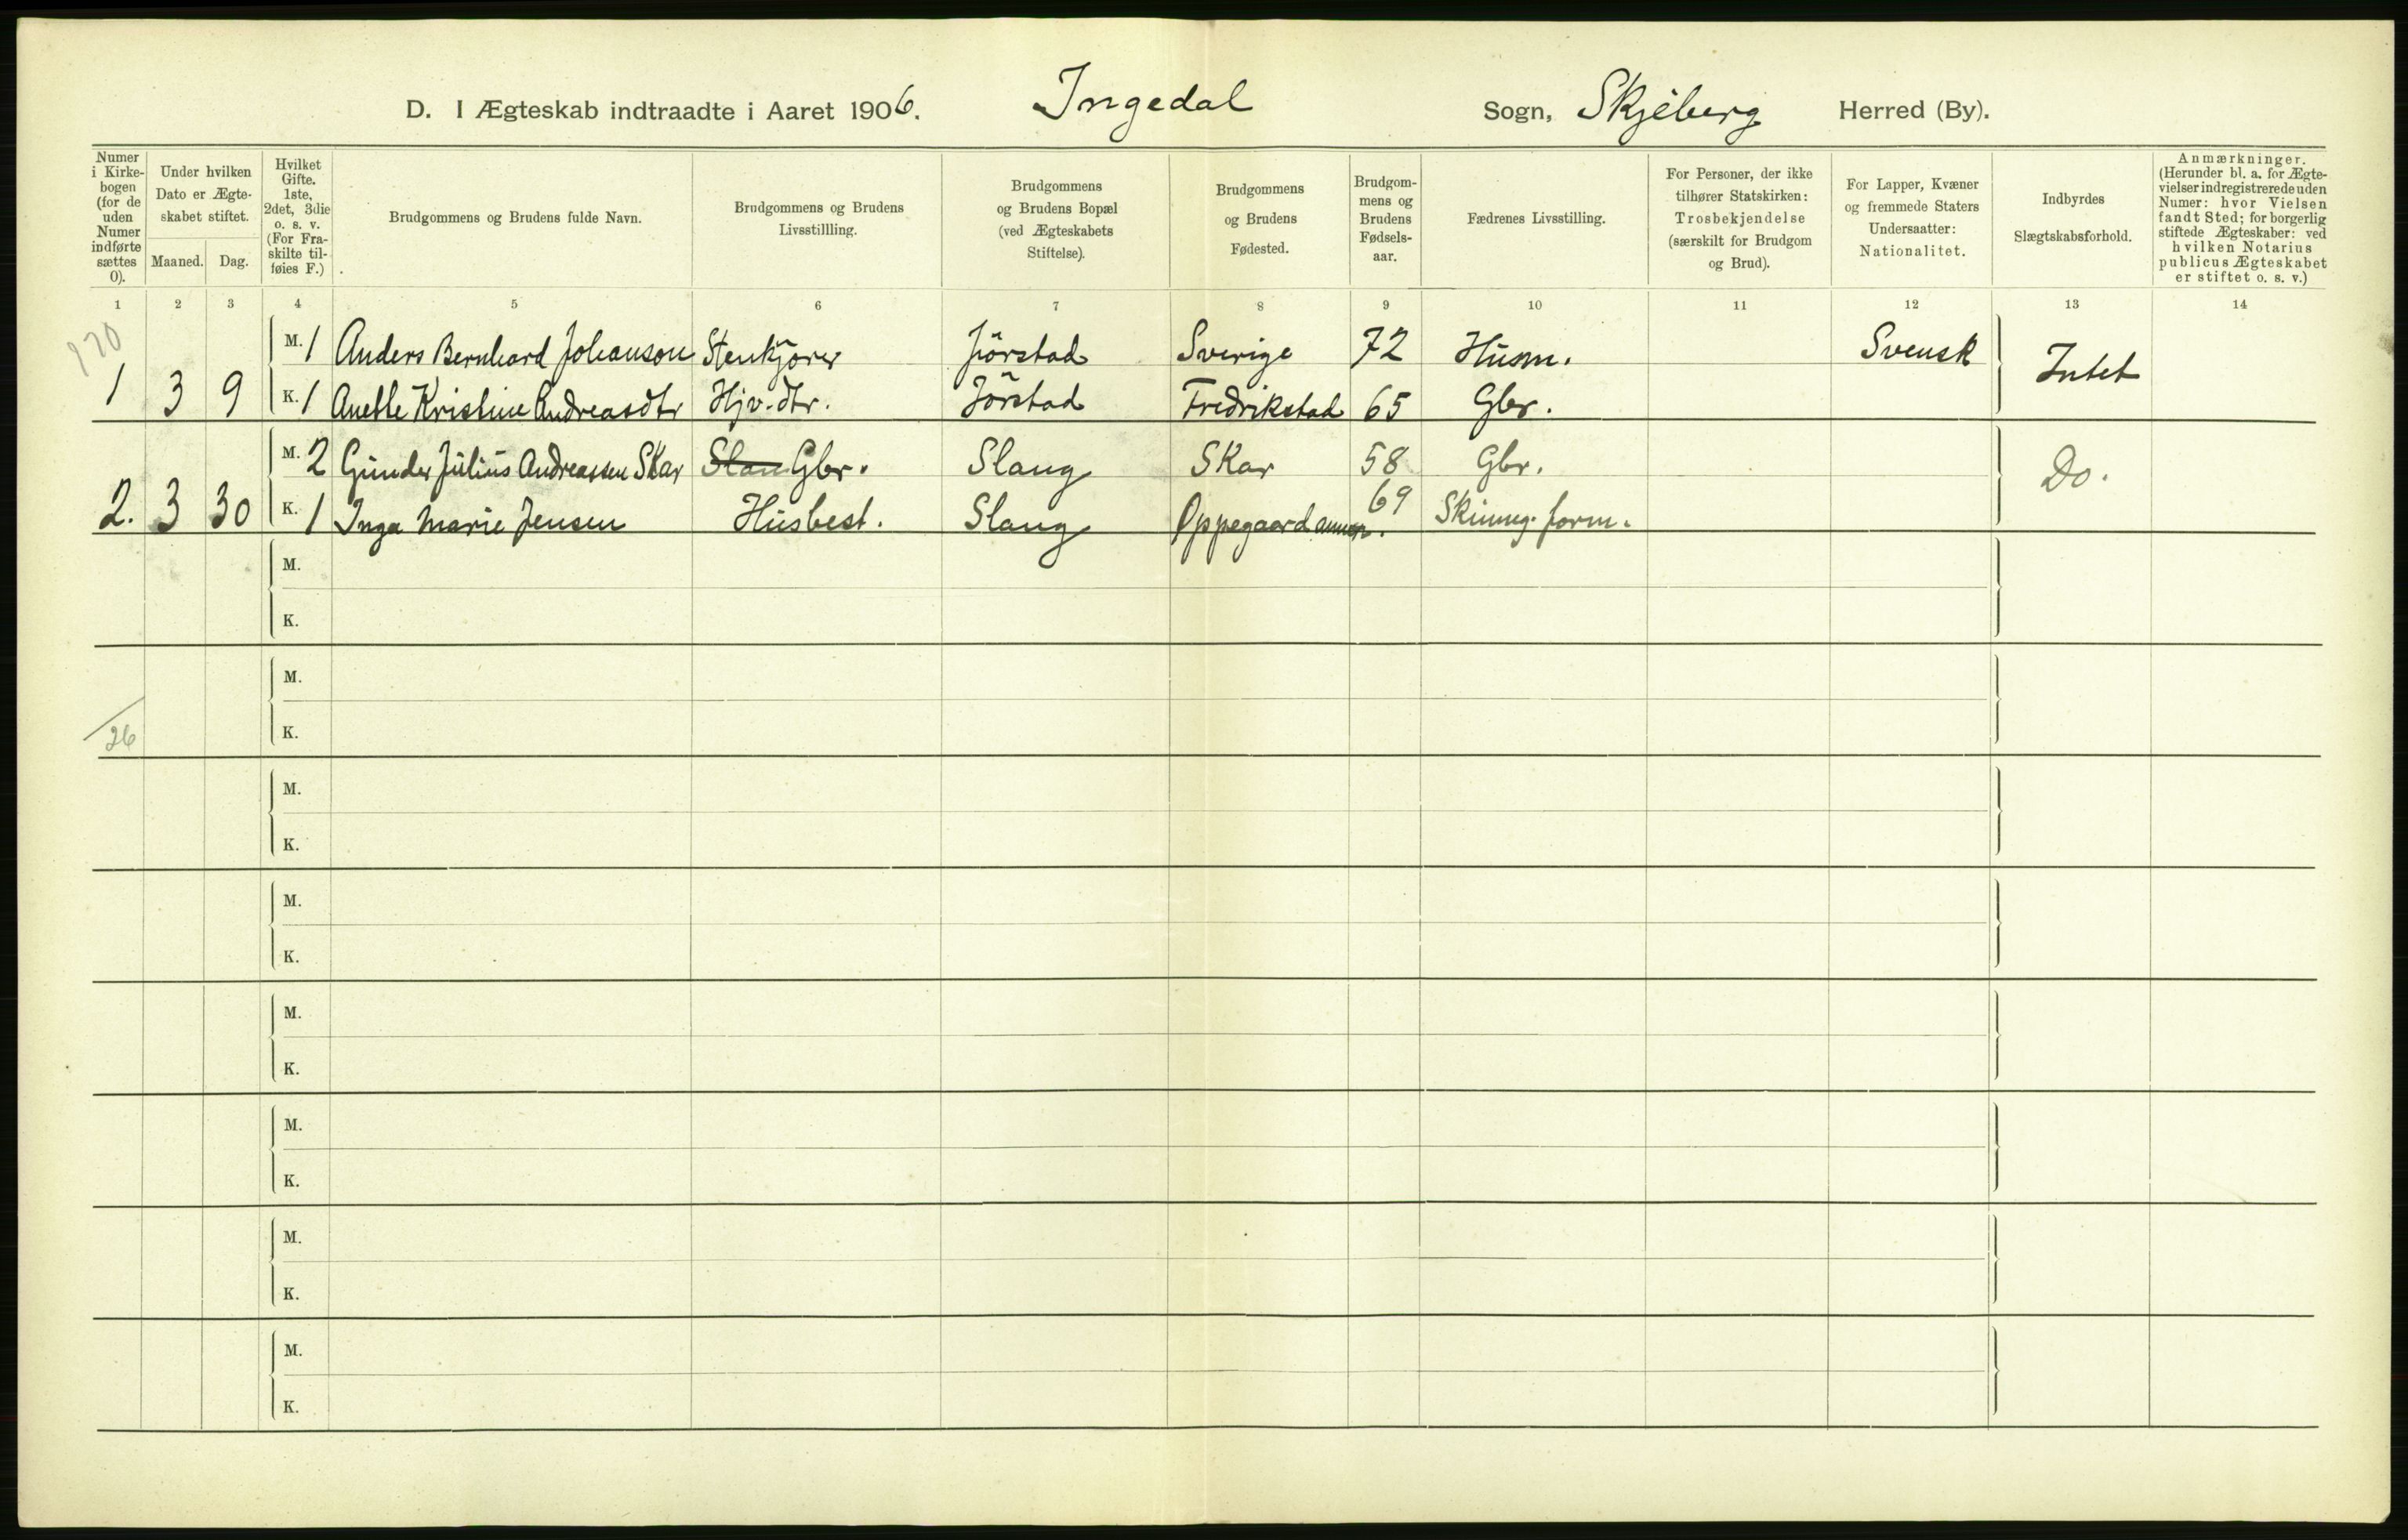 D. I Ægteskab indtraadte i Aaret 1906. Ingedal Sogn, Skjeberg Herred (By).
Numer i Kirkebogen (for de uden Numer indførte sættes 0).
Under hvilken Dato er Ægteskabet stiftet.
Maaned. Dag.
Hvilket Gifte. 1ste, 2det, 3die o. s. v. (For Fraskilte tilføies F.)
Brudgommens og Brudens fulde Navn.
Brudgommens og Brudens Livsstillling.
Brudgommens og Brudens Bopæl (ved Ægteskabets Stiftelse).
Brudgommens og Brudens Fødested.
Brudgommens og Brudens Fødselsaar.
Fædrenes Livsstilling.
For Personer, der ikke tilhører Statskirken: Trosbekjendelse (særskilt for Brudgom og Brud).
For Lapper, Kvæner og fremmede Staters Undersaatter: Nationalitet.
Indbyrdes Slægtskabsforhold.
Anmærkninger. (Herunder bl. a. for Ægtevielser indregistrerede uden Numer: hvor Vielsen fandt Sted; for borgerlig stiftede Ægteskaber: ved hvilken Notarius publicus Ægteskabet er stiftet o. s. v.)
1 2 3 4 5 6 7 8 9 10 11 12 13 14
170
M. 1 Anders Bernhard Johanson Stenkjører Jörstad Sverige 72 Husm. Svensk Intet
1 3 9 K. 1 Anette Kristine Andreasdtr Hjv. dtr. Jörstad Fredrikstad 65 Gbr.
M. 2 Gunder Julius Andreassen Skar Slan Gbr. Slang Skar 58 Gbr. Do.
2. 3 30 K. 1 Inga Marie Jensen Husbest. Slang Oppegaard 69 form.
M.
K.
M.
K.
26
M.
K.
M.
K.
M.
K.
M.
K.
M.
K.
M.
K.